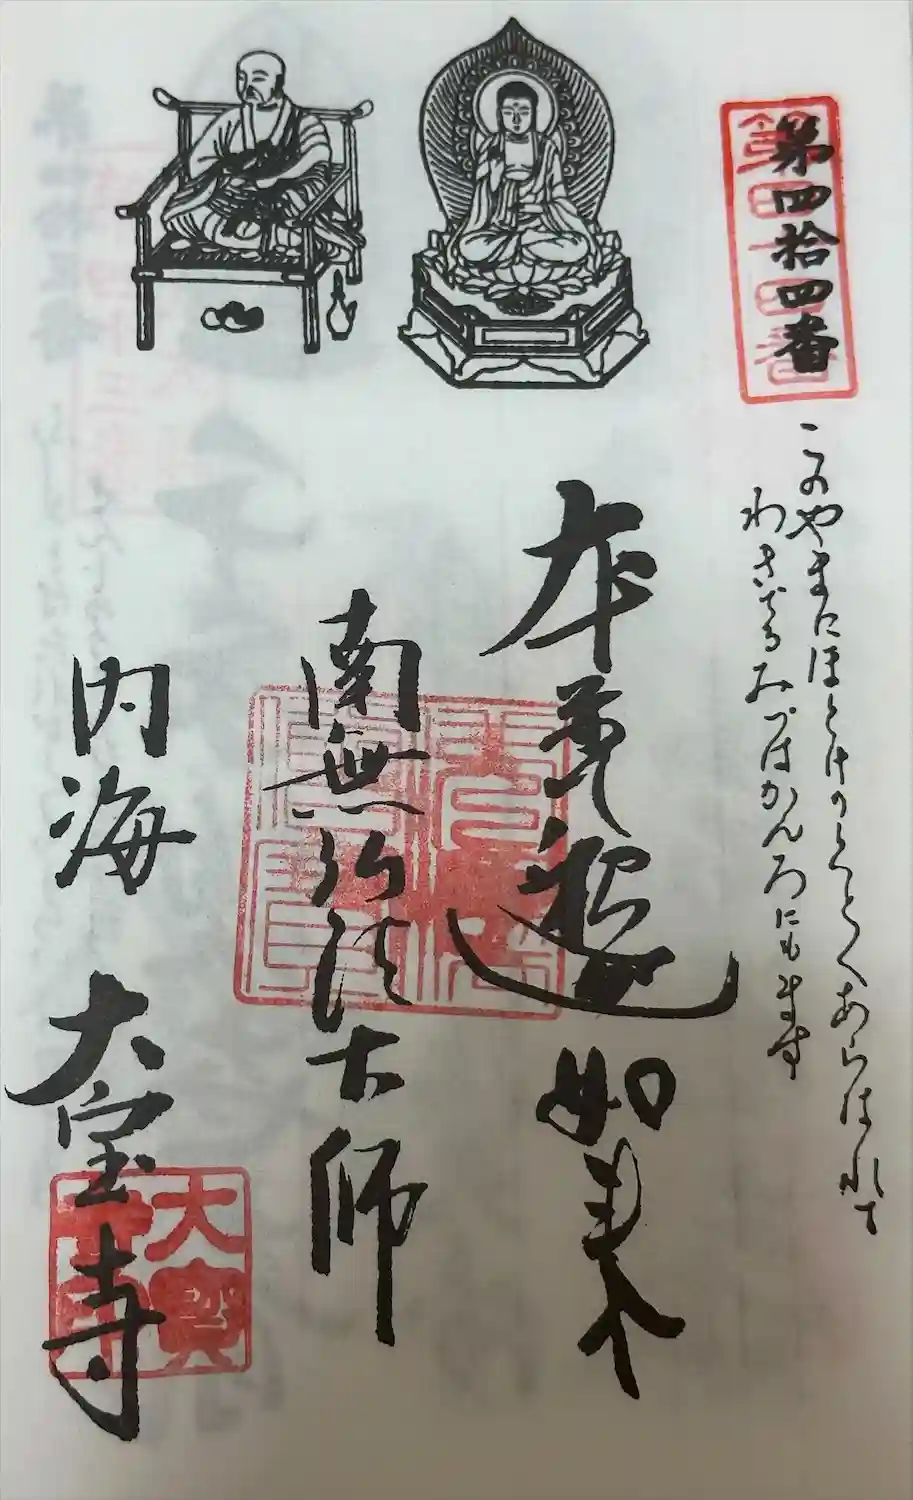 第四拾四番
このやまにほとけのひとくあらはれて
わきでるみづはかんろにもます
本尊釈迦如来
南無弘法大師
内海 大宝寺
大寶